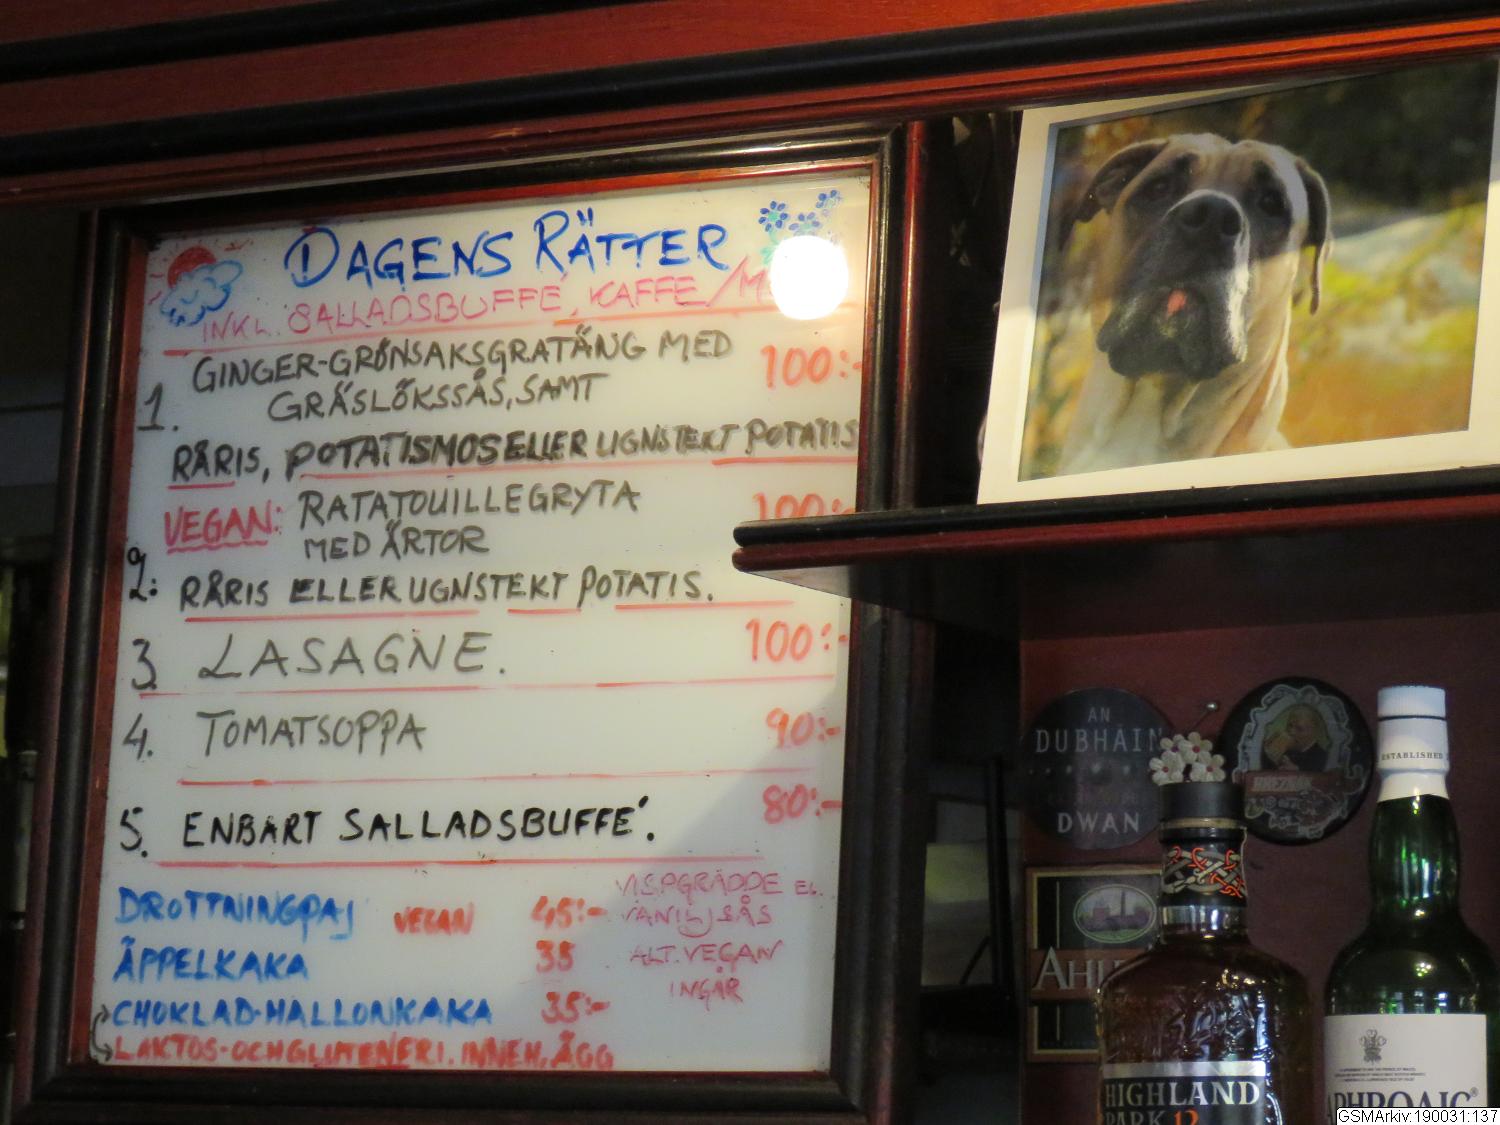 DAGENS RÄTTER
INKL. SALLADSBUFFÉ, KAFFE/
GINGER-GRÖNSAKSGRATÄNG MED 100:-
1. GRÄSLÖKSSÅS, SAMT
RÅRIS, POTATISMOS ELLER UGNSTEKT POTATIS
VEGAN: RATATOUILLEGRYTA 100:-
MED ÄRTOR
2: RÅRIS ELLER UGNSTEKT POTATIS.
3. LASAGNE. 100:-
4. TOMATSOPPA 90:-
5. ENBART SALLADSBUFFÉ. 80:-
DROTTNINGPAJ VEGAN 45:-
ÄPPELKAKA 35
CHOKLAD-HALLONKAKA 35:-
LAKTOS- OCH GLUTENFRI. INNEH. ÄGG
VISPGRÄDDE EL.
VANILJSÅS
ALT. VEGAN
INGÅR
AN
DUBHÁIN
DWAN
ESTABLISHED
HIGHLAND
PARK 12
APHROAIG®
GSMArkiv:190031:137